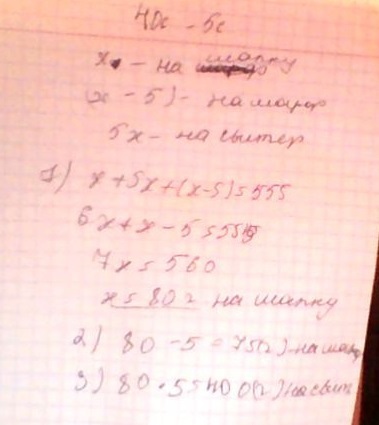 x - на шапку
(x - 5) - на шарф
5x - на свитер
1) x + 5x + (x - 5) = 555
6x + x - 5 = 555
7x = 560
x = 80 г на шапку
2) 80 - 5 = 75(г) - на шарф
3) 80 · 5 = 400(г) на свит